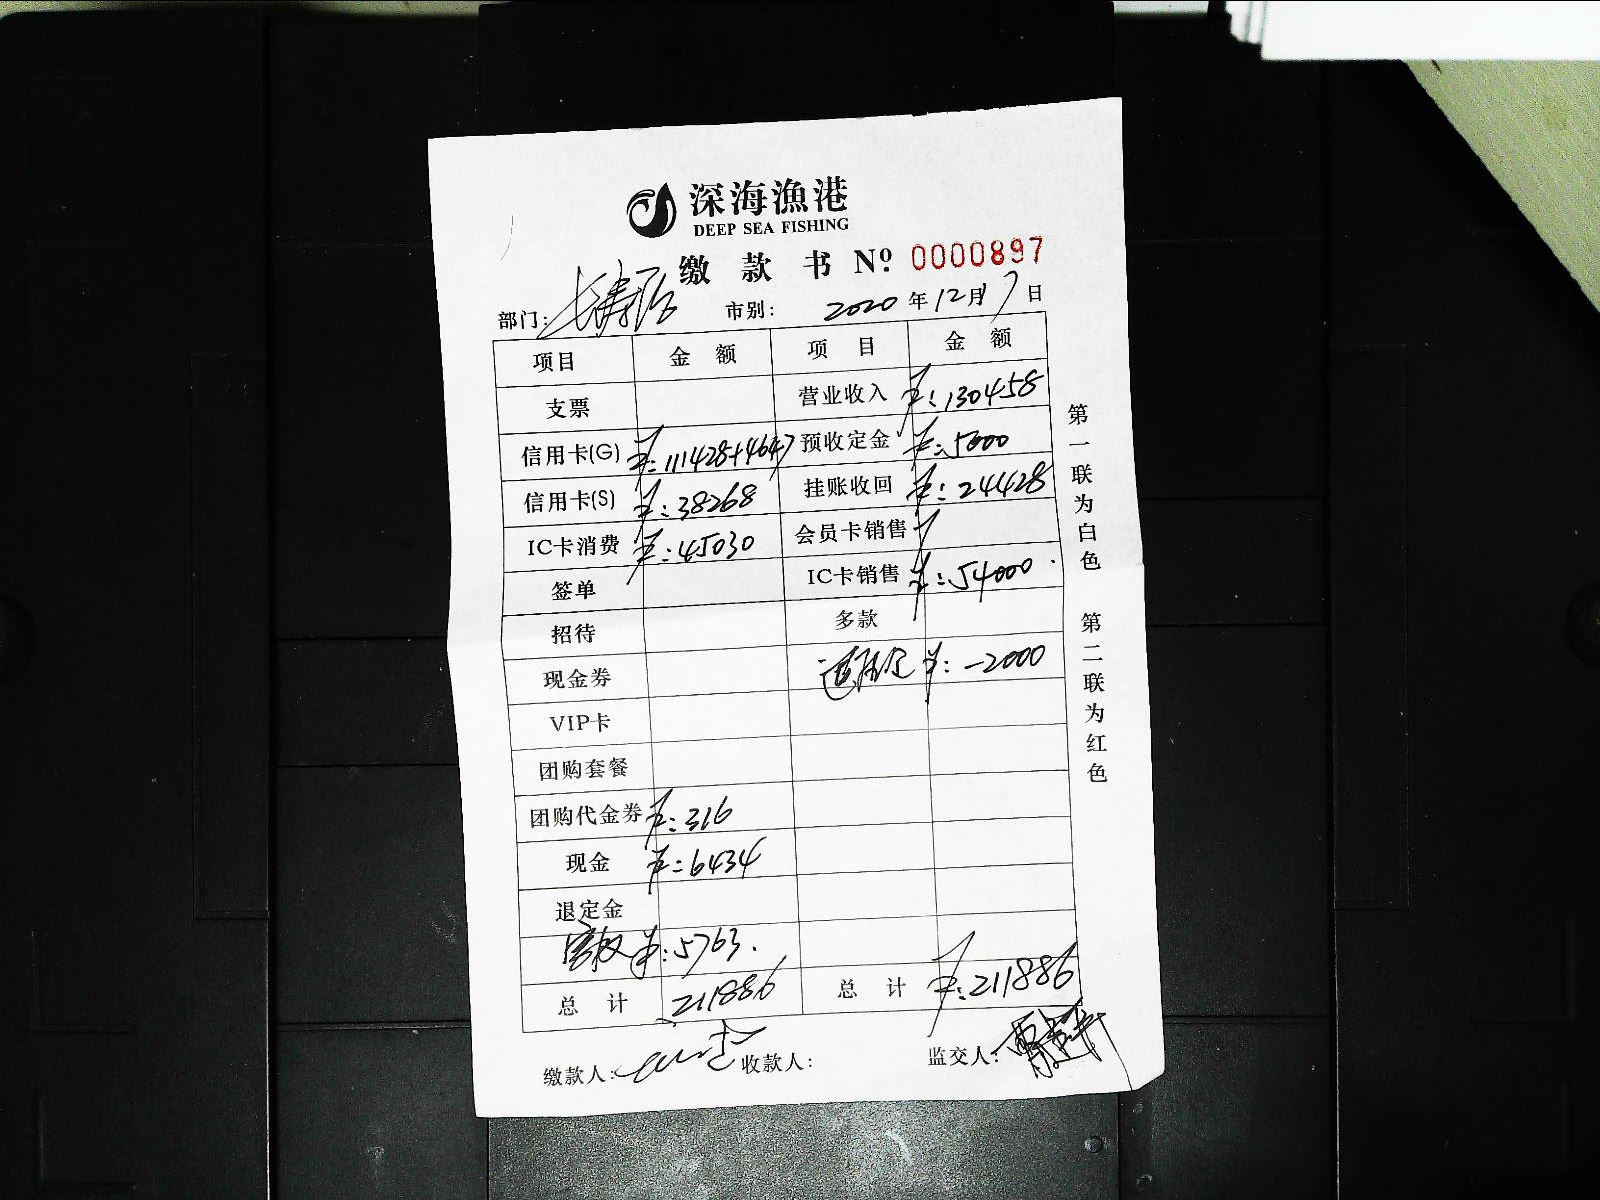 深海漁港
DEEP SEA FISHING
缴 款 书 Nº 0000897
部门: 长寿路 市别: 2020 年 12 月 17 日
项目 金 额 项 目 金 额
支票 营业收入 ¥:130458
信用卡(G) ¥:111428+4647 预收定金 ¥:5000
信用卡(S) ¥:38268 挂账收回 ¥:24428
IC卡消费 ¥:45030 会员卡销售 /
签单 IC卡销售 ¥:54000
招待 多款
现金券 ¥:-2000
VIP卡
团购套餐
团购代金券 ¥:316
现金 ¥:6434
退定金
¥:5763.
总 计 211886 总 计 ¥:211886
缴款人: 收款人: 监交人:
第一联为白色 第二联为红色